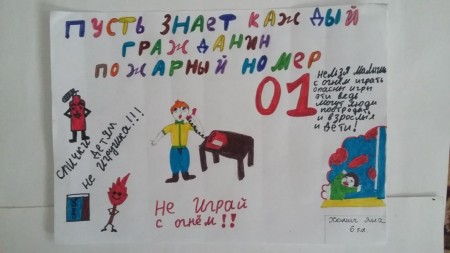 ПУСТЬ ЗНАЕТ КАЖДЫЙ
ГРАЖДАНИН
ПОЖАРНЫЙ НОМЕР
01
Нельзя малыши
с огнём играть
опасны игры
эти ведь
могут люди
пострадать
и взрослые
и дети!
СПИЧКИ ДЕТЯМ
НЕ ИГРУШКА!!!
Не Играй
с огнём!!
6 кл.